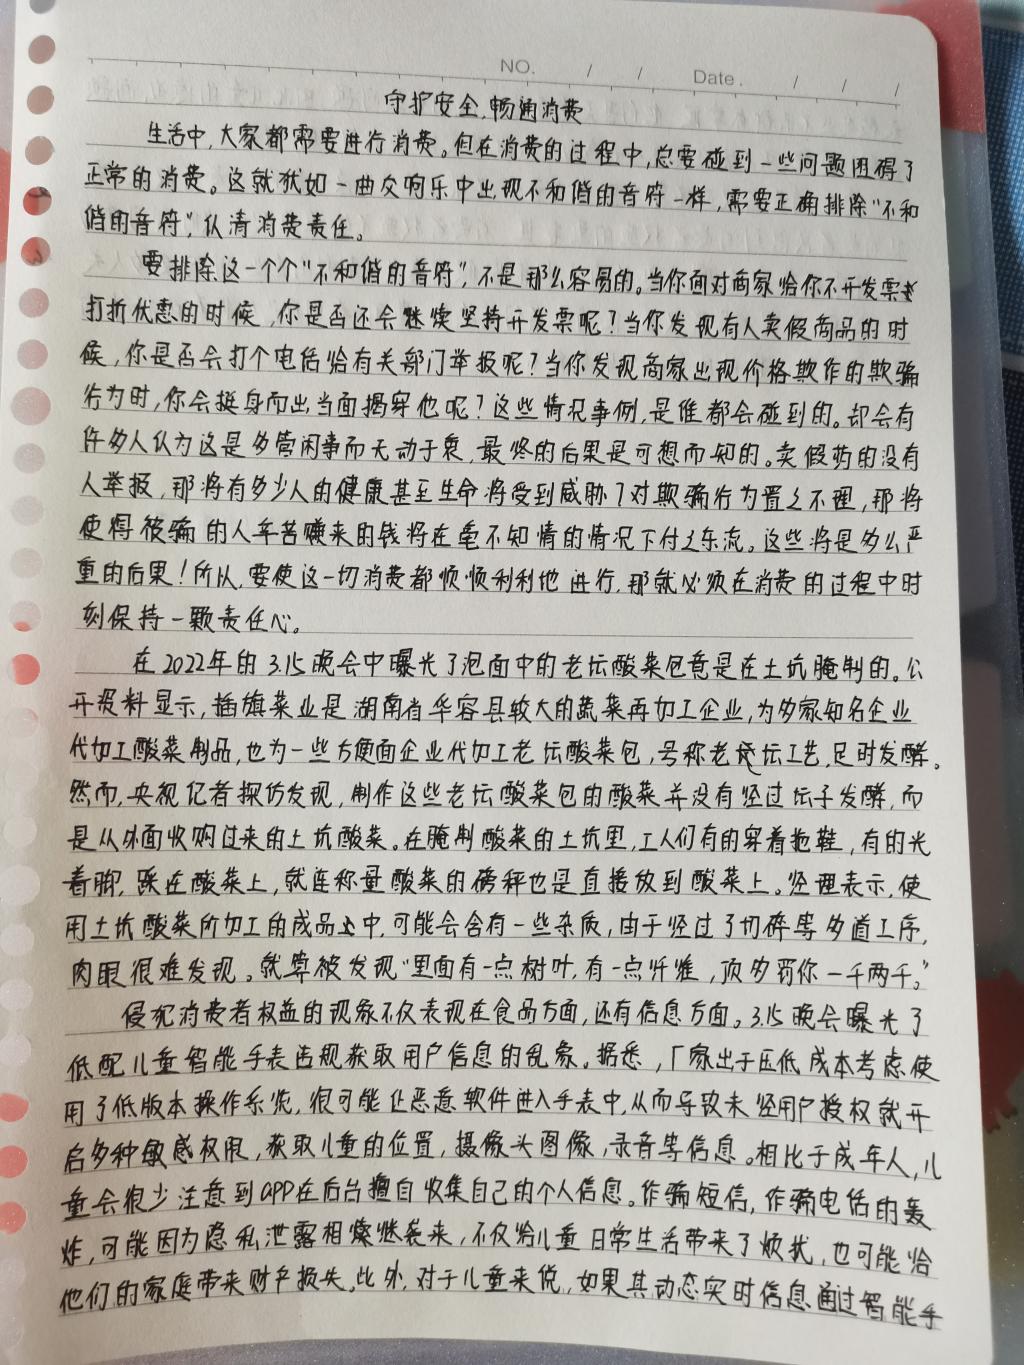 NO. / / Date. / / /
守护安全,畅通消费
生活中,大家都需要进行消费。但在消费的过程中,总要碰到一些问题困碍了
正常的消费。这就犹如一曲交响乐中出现不和谐的音符一样,需要正确排除"不和
谐的音符",认清消费责任。
要排除这一个个"不和谐的音符",不是那么容易的。当你面对商家给你不开发票
打折优惠的时候,你是否还会继续坚持开发票呢?当你发现有人卖假商品的时
候,你是否会打个电话给有关部门举报呢?当你发现商家出现价格欺诈的欺骗
行为时,你会挺身而出当面揭穿他呢?这些情况事例,是谁都会碰到的。却会有
许多人认为这是多管闲事而无动于衷,最终的后果是可想而知的。卖假药的没有
人举报,那将有多少人的健康甚至生命将受到威胁?对欺骗行为置之不理,那将
使得被骗的人辛苦赚来的钱将在毫不知情的情况下付之东流。这些将是多么严
重的后果!所以,要使这一切消费都顺顺利利地进行,那就必须在消费的过程中时
刻保持一颗责任心。
在2022年的3.15晚会中曝光了泡面中的老坛酸菜包竟是在土坑腌制的。公
开资料显示,插旗菜业是湖南省华容县较大的蔬菜再加工企业,为多家知名企业
代加工酸菜制品,也为一些方便面企业代加工老坛酸菜包,号称老坛工艺,足时发酵。
然而,央视记者探访发现,制作这些老坛酸菜包的酸菜并没有经过坛子发酵,而
是从外面收购过来的土坑酸菜。在腌制酸菜的土坑里,工人们有的穿着拖鞋,有的光
着脚,踩在酸菜上,就连称量酸菜的磅秤也是直接放到酸菜上。经理表示,使
用土坑酸菜所加工的成品中,可能会含有一些杂质,由于经过了切碎等多道工序,
肉眼很难发现。就算被发现"里面有一点树叶,有一点纤维,顶多罚你一千两千。"
侵犯消费者权益的现象不仅表现在食品方面,还有信息方面。3.15晚会曝光了
低配儿童智能手表违规获取用户信息的乱象。据悉,厂家出于压低成本考虑使
用了低版本操作系统,很可能让恶意软件进入手表中,从而导致未经用户授权就开
启多种敏感权限,获取儿童的位置,摄像头图像,录音等信息。相比于成年人,儿
童会很少注意到app在后台擅自收集自己的个人信息。诈骗短信,诈骗电话的轰
炸,可能因为隐私泄露相继袭来,不仅给儿童日常生活带来了烦扰,也可能给
他们的家庭带来财产损失。此外,对于儿童来说,如果其动态实时信息通过智能手